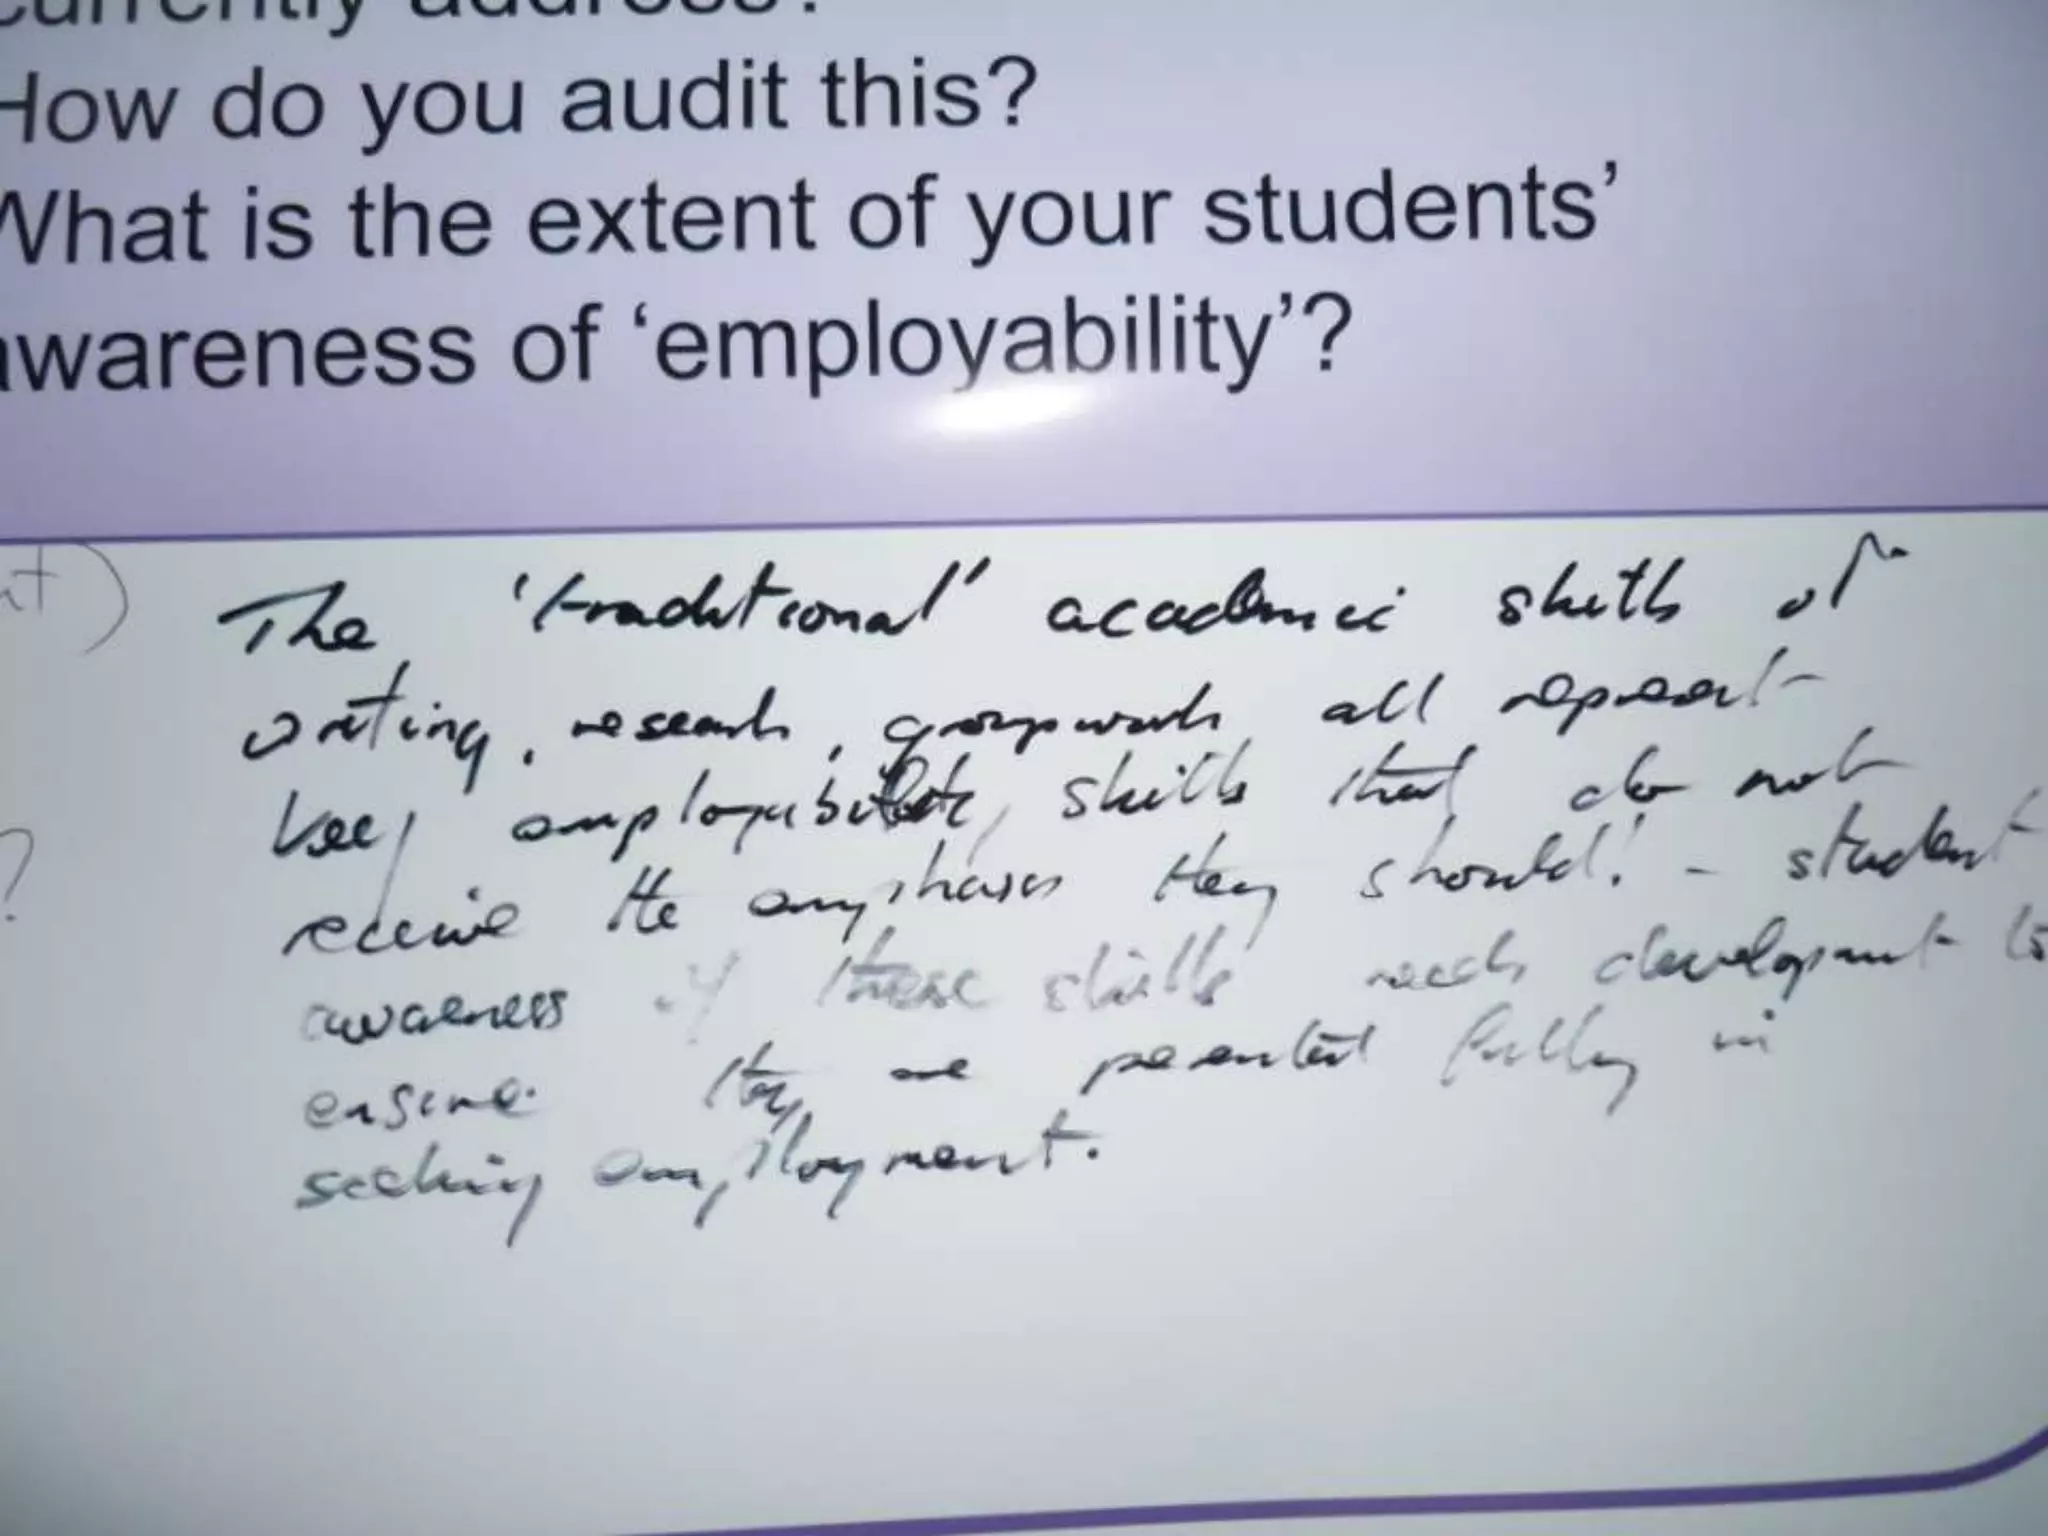 currently address?
How do you audit this?
What is the extent of your students'
awareness of 'employability'?
The 'traditional' academic skills of
writing, research, groupwork all represent
key employability skills that do not
receive the emphasis they should! - student
awareness of these skills needs development to
ensure they are presented fully in
seeking employment.